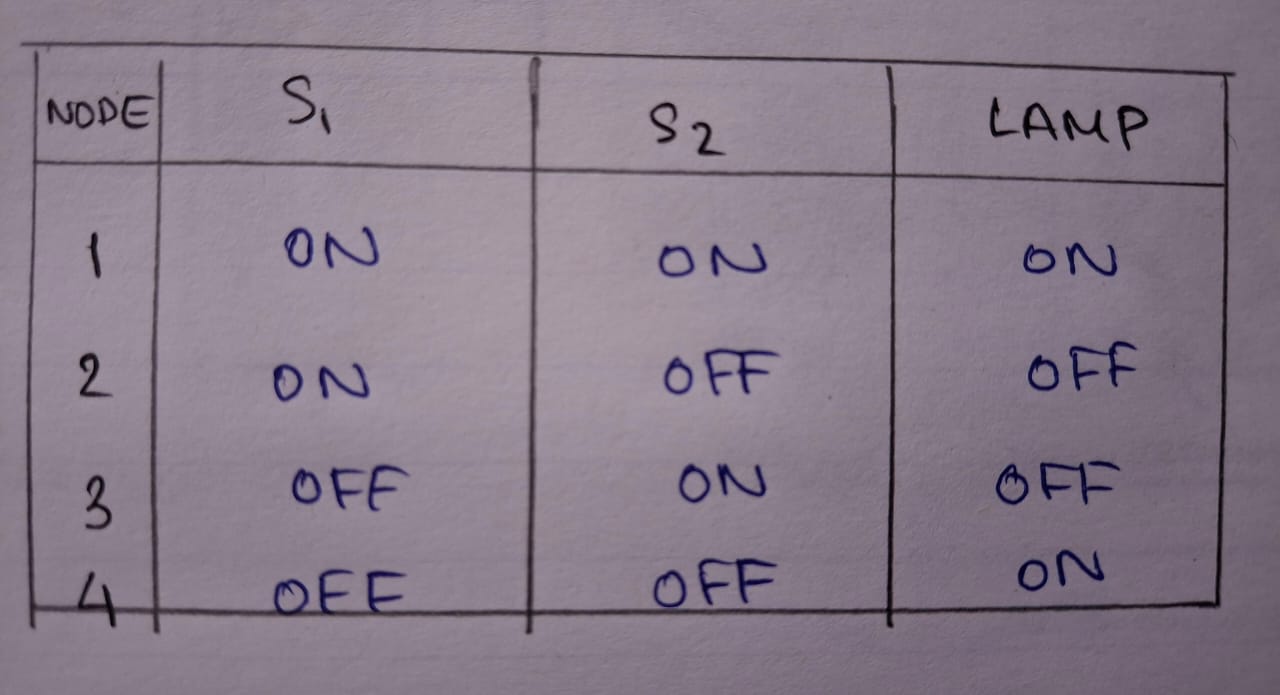 NODE S₁ S2 LAMP
1 ON ON ON
2 ON OFF OFF
3 OFF ON OFF
4 OFF OFF ON